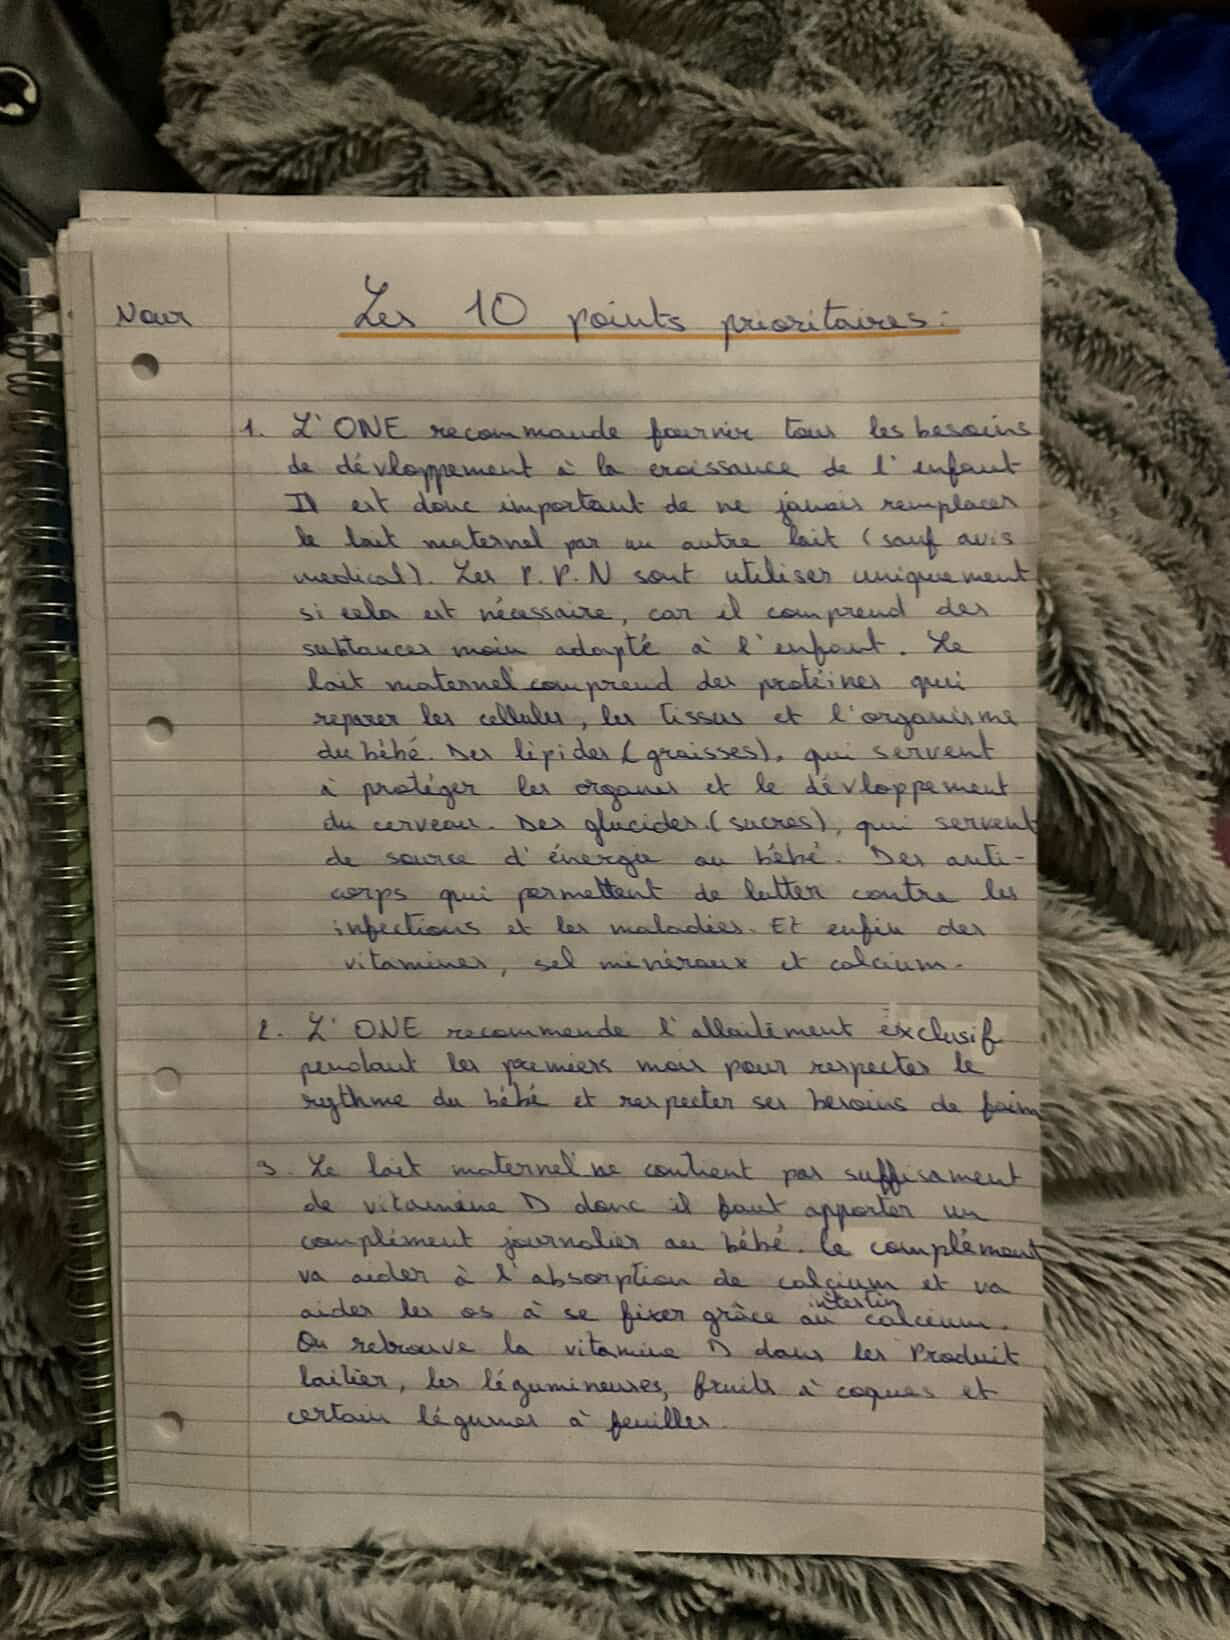 Nour
Les 10 points prioritaires:
1. L'ONE recommande fournir tous les besoins
de dévloppement à la croissance de l'enfant
Il est donc important de ne jamais remplacer
le lait maternel par un autre lait (sauf avis
medical). Les P.P.N sont utiliser uniquement
si cela est nécessaire, car il comprend des
subtances moin adapté à l'enfant. Le
lait maternel comprend des protéines qui
reparer les cellules, les tissus et l'organisme
du bébé. Des lipides (graisses), qui servent
à protéger les organes et le dévloppement
du cerveau. Des glucides (sucres), qui servent
de source d'énergie au bébé. Des anti-
corps qui permettent de lutter contre les
infections et les maladies. Et enfin des
vitamines, sel minéraux et calcium.
2. L'ONE recommende l'allaitement exclusif
pendant les premiers mois pour respecter le
rythme du bébé et respecter ses besoins de faim
3. Le lait maternel ne contient pas suffisament
de vitamine D donc il faut apporter un
complément journalier au bébé. Ce complément
va aider à l'absorption de calcium et va
intestin
aider les os à se fixer grâce au calcium.
On retrouve la vitamine D dans les Produit
laitier, les légumineuses, fruits à coques et
certain légumes à feuilles.